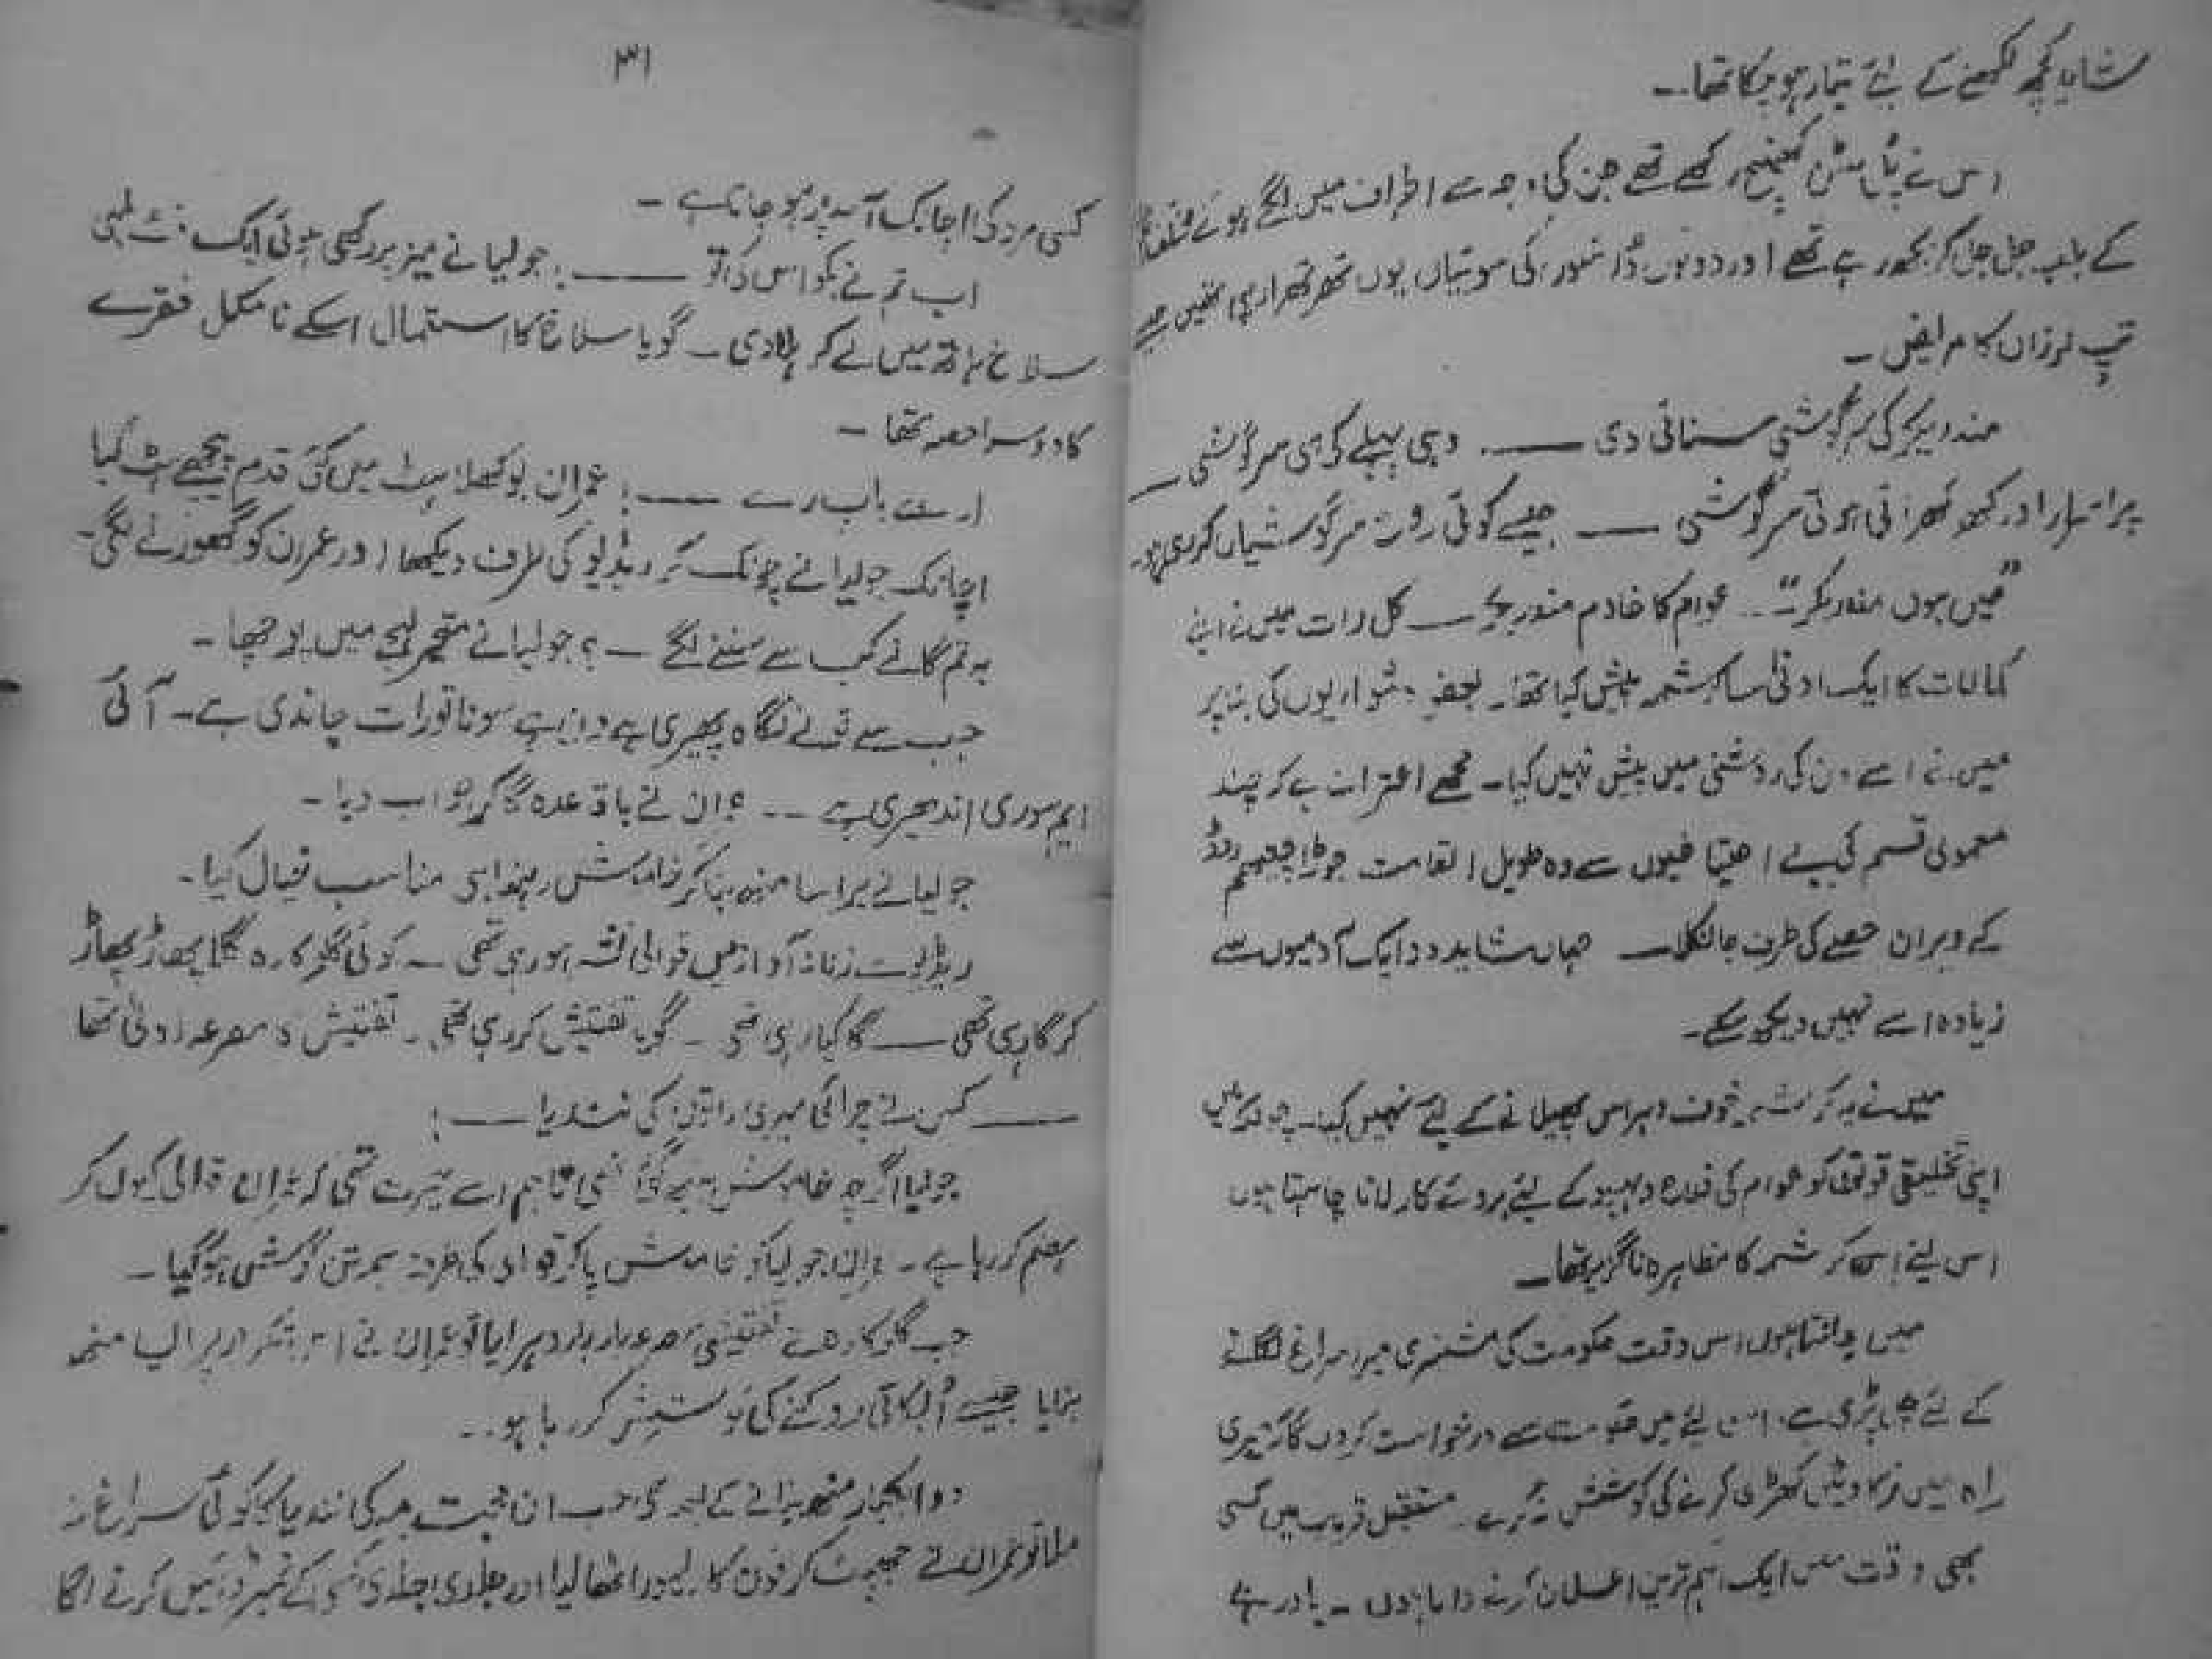 شاید کچھ لکھنے کے لئے تیار ہو چکا تھا۔
اس نے پش بٹن کھینچ رکھے تھے جن کی وجہ سے اطراف میں لگے ہوئے مختلف
کے بلب جل جل کر بجھ رہے تھے اور دونوں کی سوئیاں یوں تھرتھرا رہی تھیں جیسے
تپ لرزاں کا مریض ۔
مندریکر کی سرگوشی سنائی دی ــــ . وہی پہلے کی سی سرگوشی ــ
پراسرار اور کھڑکھڑاتی ہوئی سرگوشی ــــ جیسے کوئی روح سرگوشیاں کر رہی ہو۔
”میں ہوں مندریکر“ ۔۔ عوام کا خادم مندریکر ــ کل رات میں نے اپنے
کمالات کا ایک ادنیٰ سا کرشمہ پیش کیا تھا۔ بعض دشواریوں کی بنا پر
میں نے اسے دن کی روشنی میں پیش نہیں کیا۔ مجھے اعتراف ہے کہ چند
معمولی قسم کی بے احتیاطیوں سے وہ طویل القامت جوڑا چیتھم روڈ
کے ویران حصے کی طرف جا نکلا ــ جہاں شاید دو ایک آدمیوں سے
زیادہ اسے نہیں دیکھ سکے۔
میں نے یہ کرشمہ خوف و ہراس پھیلانے کے لئے نہیں کیا۔ چونکہ میں
اپنی تخلیقی قوتوں کو عوام کی فلاح و بہبود کے لئے بروئے کار لانا چاہتا ہوں
اس لئے اس کرشمہ کا مظاہرہ ناگزیر تھا ــ
میں جانتا ہوں اس وقت حکومت کی مشنری میرا سراغ لگانے
کے لئے چل پڑی ہے۔ اس لئے میں حکومت سے درخواست کروں گا کہ میری
راہ میں رکاوٹیں کھڑی کرنے کی کوشش نہ کرے ۔ مستقبل قریب میں کسی
بھی وقت میں ایک اہم ترین اعلان کرنے والا ہوں ۔ یاد رہے
۳۱
کسی مرد کی اچانک آمد پر ہو جاتا ہے ۔
اب تم نے بکواس کی تو ــــــ ؛ جولیا نے میز پر رکھی ہوئی ایک فٹ لمبی
سلاخ ہاتھ میں لے کر ہلا دی ۔ گویا سلاخ کا استعمال اسکے نامکمل فقرے
کا دوسرا حصہ تھا ۔
ارے باپ رے ــــــ ؛ عمران بوکھلاہٹ میں کئی قدم پیچھے ہٹ گیا
اچانک جولیا نے چونک کر ریڈیو کی طرف دیکھا اور عمران کو گھورنے لگی۔
یہ تم گانے کب سے سننے لگے ــ ؟ جولیا نے متحیر لہجے میں پوچھا ۔
جب سے تو نے نگاہ پھیری ہے دن ہے سونا تو رات چاندی ہے ۔ آئی
ایم سوری اندھیری ہے ۔۔ عمران نے باقاعدہ گا کر جواب دیا ۔
جولیا نے برا سا منہ بنا کر خاموش رہنا ہی مناسب خیال کیا۔
ریڈیو سے زنانہ آواز میں قوالی نشر ہو رہی تھی ــ کوئی گلوکارہ گلا پھاڑ پھاڑ
کر گا رہی تھی ــــ گا کیا رہی تھی ــ گویا تفتیش کر رہی تھی ۔ تفتیش کا مصرعہ اولیٰ تھا
ــــــ کس نے چرائی میری راتوں کی نندیا ــــــ ؛
جولیا اگرچہ خاموش ہو گئی تھی تاہم اسے حیرت تھی کہ عمران قوالی کیوں کر
ہضم کر رہا ہے ۔ عمران جولیا کو خاموش پا کر قوالی کی طرف ہمہ تن گوش ہو گیا ۔
جب گلوکارہ نے تفتیشی مصرعہ بار بار دہرایا تو عمران نے اس تکرار پر ایسا منہ
بنایا جیسے اُبکائی روکنے کی کوشش کر رہا ہو ۔۔
دو ایک بار منھ بنانے کے بعد بھی جب ان محبت کی نندیا کا کوئی سراغ نہ
ملا تو عمران نے جھپٹ کر فون کا ریسیور اٹھا لیا اور جلدی جلدی کسی کے نمبر ڈائیل کرنے لگا